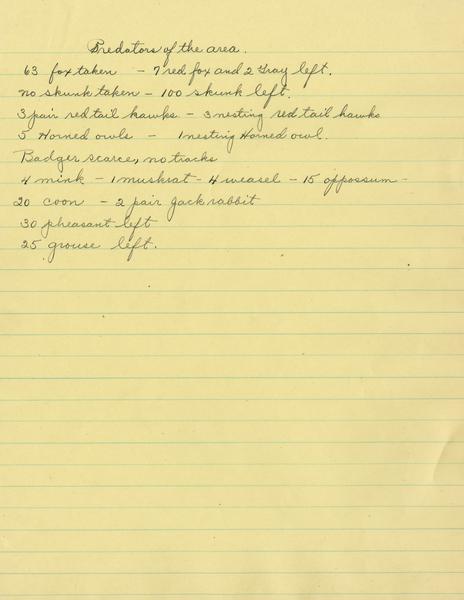 Predators of the area.
63 fox taken - 7 red fox and 2 Gray left.
no skunk taken - 100 skunk left.
3 pair red tail hawks - 3 nesting red tail hawks
5 Horned owls - 1 nesting Horned owl.
Badger scarce, no tracks
4 mink - 1 muskrat - 4 weasel - 15 oppossum -
20 coon - 2 pair Jack rabbit
30 pheasant left
25 grouse left.